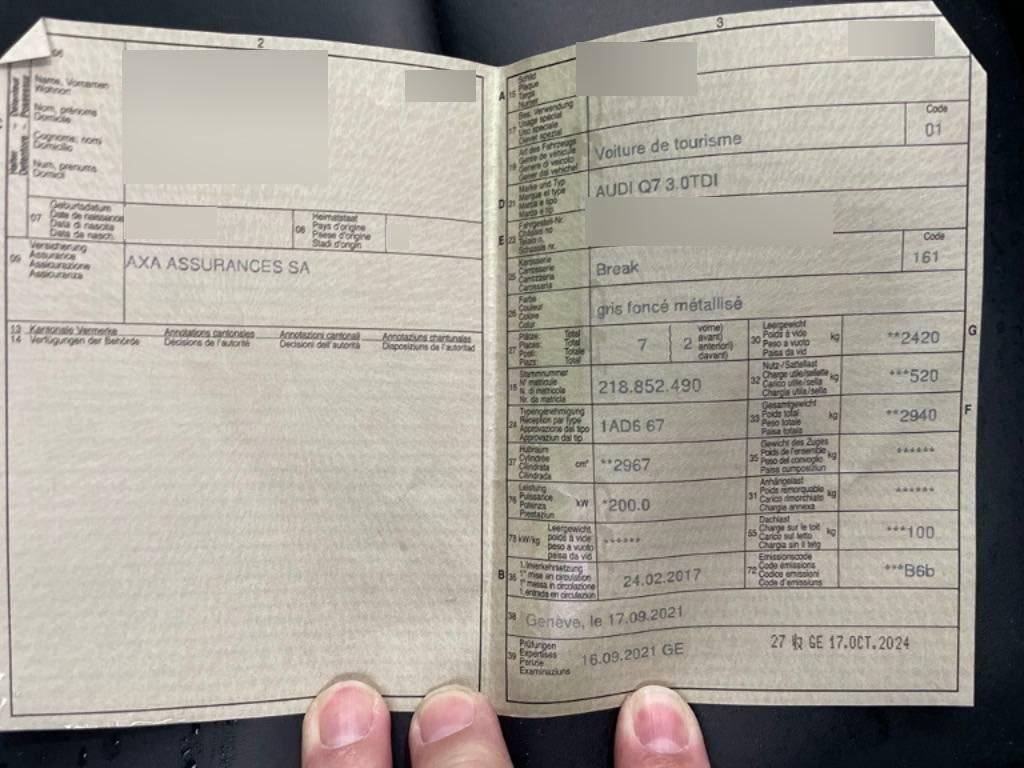 2
06
Halter - Détenteur
Detentore - Possessur
Name, Vornamen
Wohnort
Nom, prénoms
Domicile
Cognome, nomi
Domicilio
Num, prenums
Domicil
07
Geburtsdatum
Date de naissance
Data di nascita
Data da nasch.
08
Heimatstaat
Pays d'origine
Paese d'origine
Stadi d'origin
09
Versicherung
Assurance
Assicurazione
Assicuranza
AXA ASSURANCES SA
13 Kantonale Vermerke Annotations cantonales Annotazioni cantonali Annotaziuns chantunalas
14 Verfügungen der Behörde Décisions de l'autorité Decisioni dell'autorità Disposiziuns da l'autoritad
3
A 15
Schild
Plaque
Targa
Numer
17
Bes. Verwendung
Usage spécial
Uso speciale
Diever spezial
19
Art des Fahrzeugs
Genre de véhicule
Genere di veicolo
Gener dal vehichel
Voiture de tourisme
Code
01
D 21
Marke und Typ
Marque et type
Marca e tipo
Marca e tip
AUDI Q7 3.0TDI
E 23
Fahrgestell-Nr.
Châssis no
Telaio n.
Schassis nr.
25
Karosserie
Carrosserie
Carrozzeria
Carossaria
Break
Code
161
26
Farbe
Couleur
Colore
Colur
gris foncé métallisé
27
Plätze: Total
Places: Total
Posti: Totale
Plazs: Total
7
2
vorne)
avant)
anteriori)
davant)
30
Leergewicht
Poids à vide
Peso a vuoto
Paisa da vid
kg
**2420
G
18
Stammnummer
N° matricule
N. di matricola
Nr. da matricla
218.852.490
32
Nutz-/Sattellast
Charge utile/sellette
Carico utile/sella
Chargia utila/sella
kg
***520
24
Typengenehmigung
Réception par type
Approvazione del tipo
Approvaziun dal tip
1AD6 67
33
Gesamtgewicht
Poids total
Peso totale
Paisa totala
kg
**2940
F
37
Hubraum
Cylindrée
Cilindrata
Cilindrada
cm³
**2967
35
Gewicht des Zuges
Poids de l'ensemble
Peso del convoglio
Paisa cumposiziun
kg
******
76
Leistung
Puissance
Potenza
Prestaziun
kW
*200.0
31
Anhängelast
Poids remorquable
Carico rimorchiato
Chargia annexa
kg
******
78 kW/kg
Leergewicht
poids à vide
peso a vuoto
paisa da vid
******
55
Dachlast
Charge sur le toit
Carico sul tetto
Chargia sin il tetg
kg
***100
B 36
1. Inverkehrsetzung
1re mise en circulation
1a messa in circolazione
1. entrada en circulaziun
24.02.2017
72
Emissionscode
Code émissions
Codice emissioni
Code d'emissiuns
***B6b
38
Genève, le 17.09.2021
39
Prüfungen
Expertises
Perizie
Examinaziuns
16.09.2021 GE
GE 17.OCT.2024